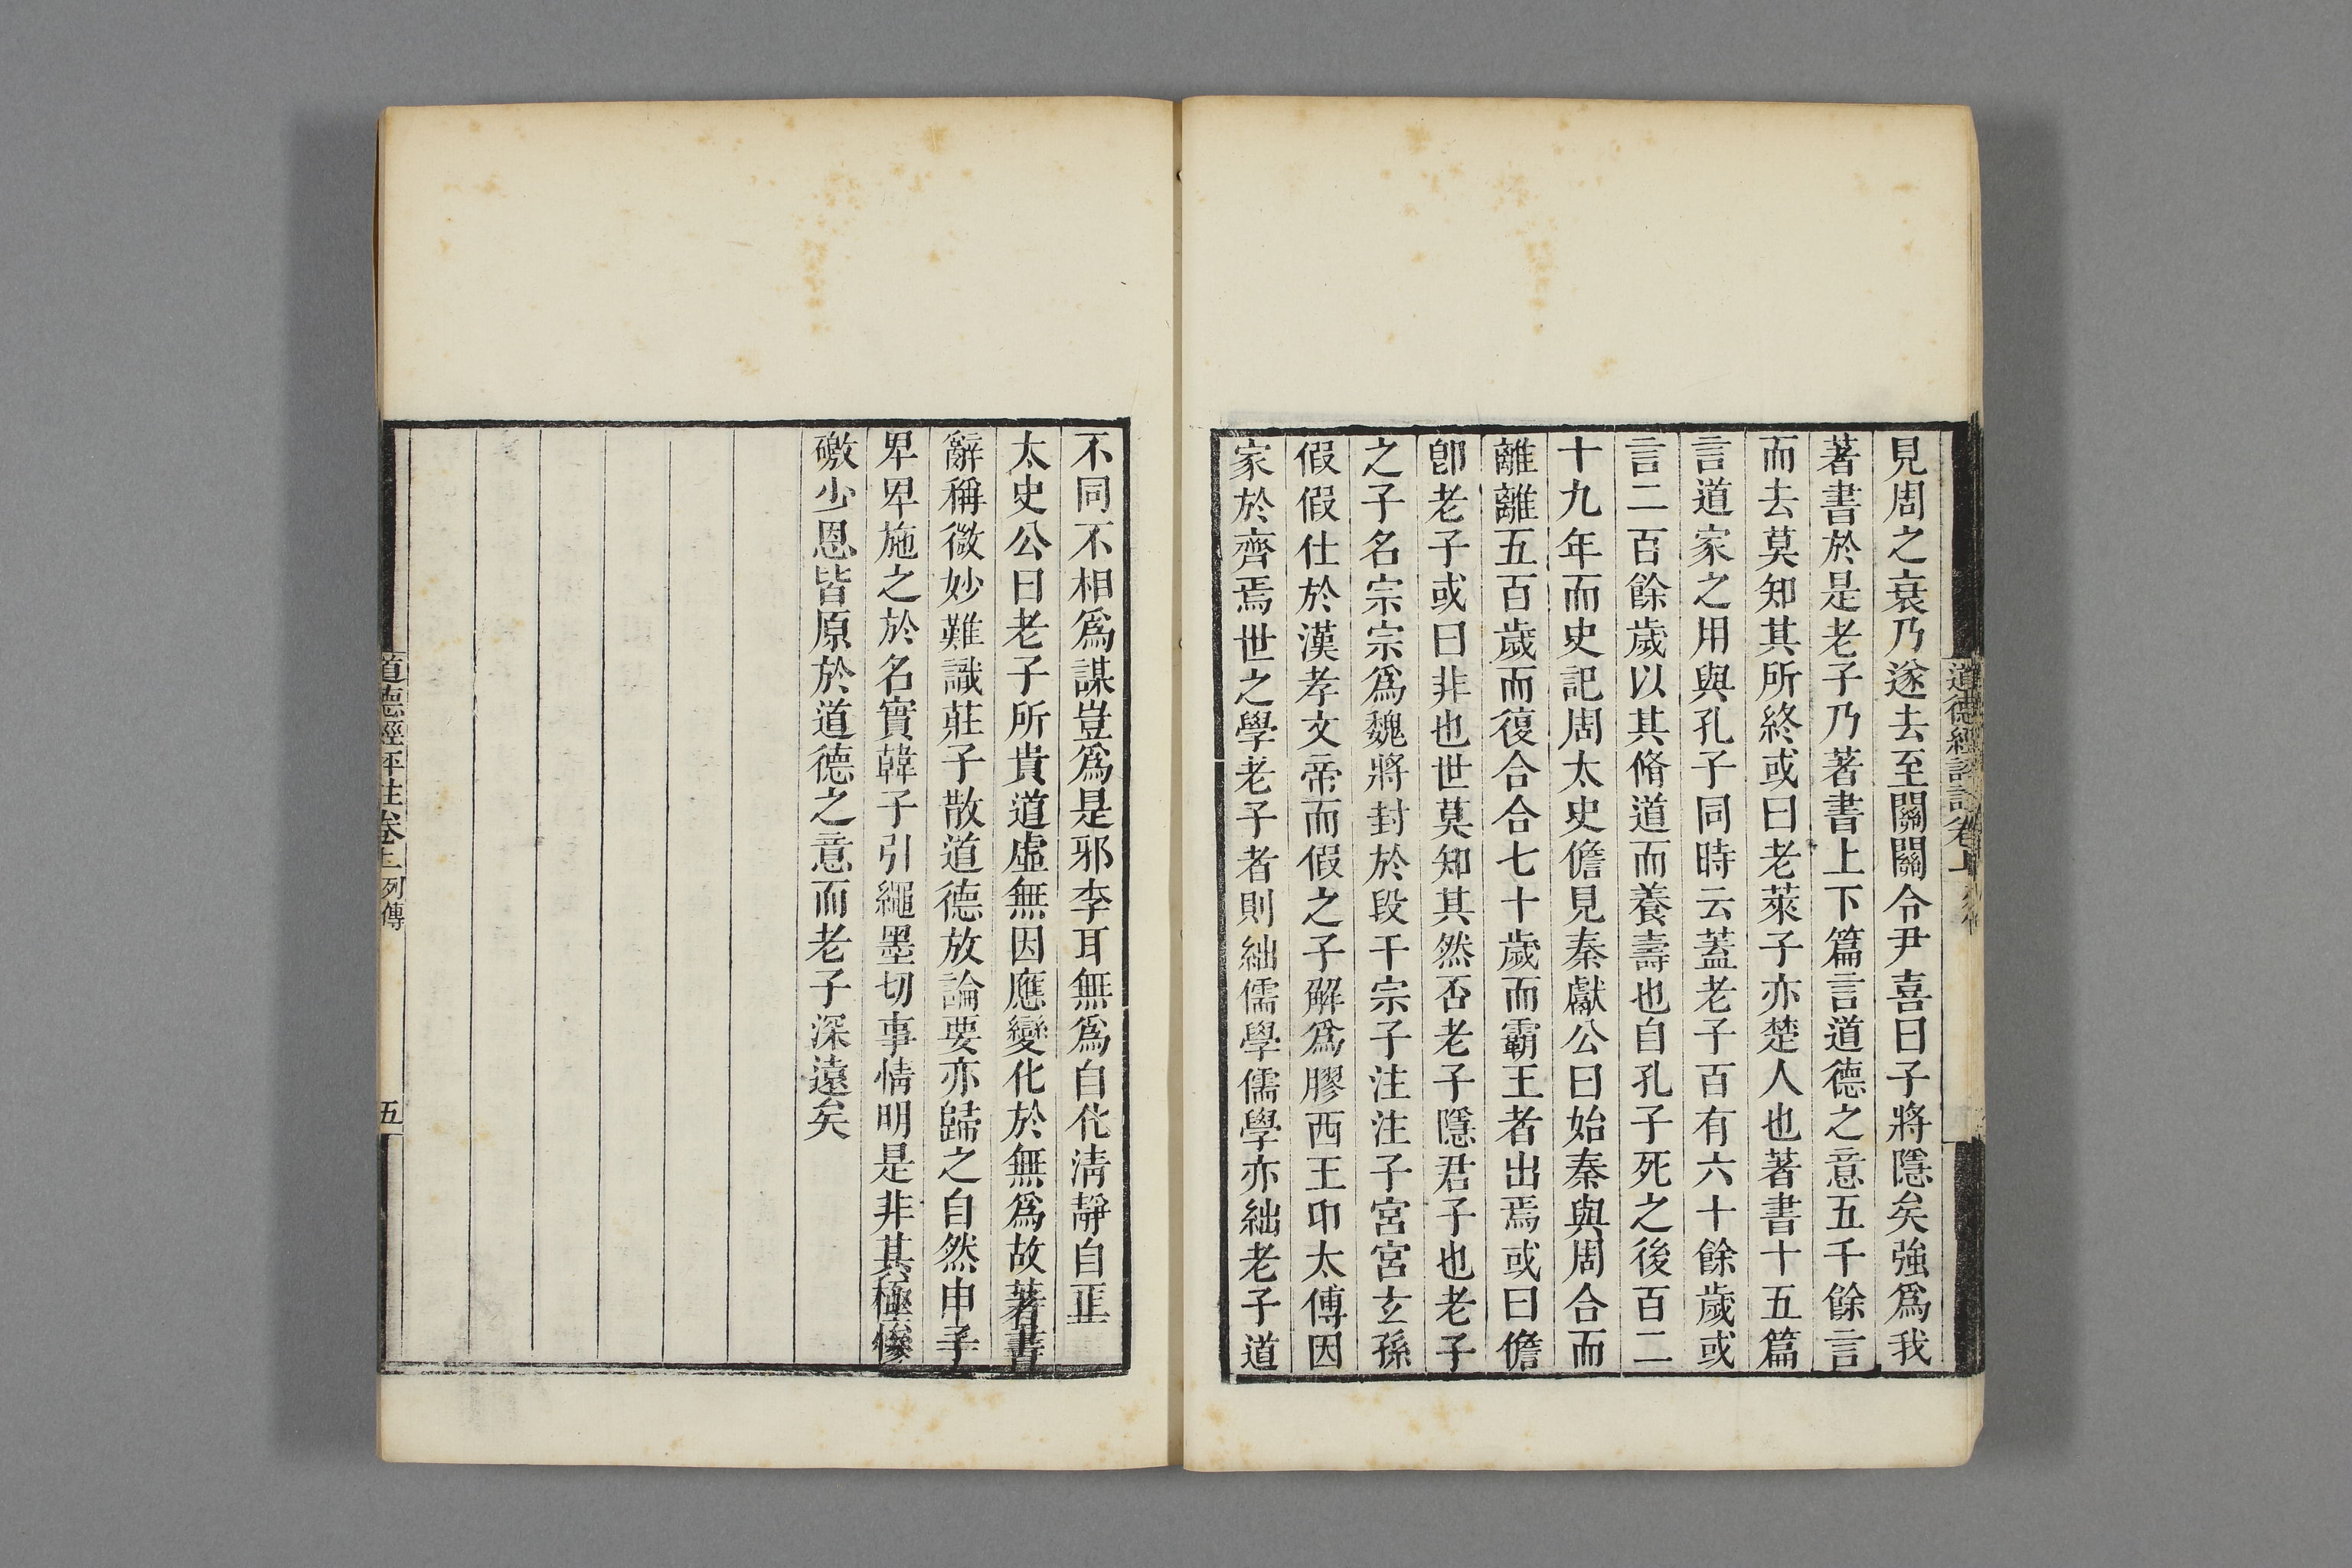 見周之衰乃遂去至關關令尹喜曰子將隱矣強爲我
著書於是老子乃著書上下篇言道德之意五千餘言
而去莫知其所終或曰老萊子亦楚人也著書十五篇
言道家之用與孔子同時云蓋老子百有六十餘歲或
言二百餘歲以其脩道而養壽也自孔子死之後百二
十九年而史記周太史儋見秦獻公曰始秦與周合而
離離五百歲而復合合七十歲而霸王者出焉或曰儋
卽老子或曰非也世莫知其然否老子隱君子也老子
之子名宗宗爲魏將封於段干宗子注注子宮宮玄孫
假假仕於漢孝文帝而假之子解爲膠西王卭太傅因
家於齊焉世之學老子者則絀儒學儒學亦絀老子道
不同不相爲謀豈爲是邪李耳無爲自化淸靜自正
太史公曰老子所貴道虛無因應變化於無爲故著書
辭稱微妙難識莊子散道德放論要亦歸之自然申子
卑卑施之於名實韓子引繩墨切事情明是非其極慘
礉少恩皆原於道德之意而老子深遠矣
道德經評註卷上 列傳
五